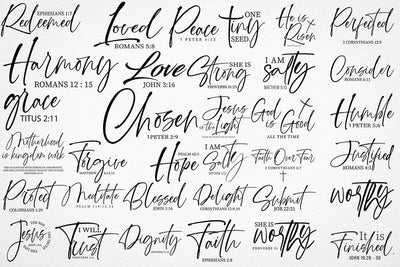 Redeemed
EPHESIANS 1:7
Loved
ROMANS 5:8
Peace
1 PETER 4:13
ONE
tiny
SEED.
He is
Risen
Perfected
2 CORINTHIANS 12:9
Harmony
ROMANS 12 : 15
Love
JOHN 3:16
SHE IS
Strong
PROVERBS 31:25
I AM
salty
MATTHEW 5:13
Consider
ROMANS 6:11
grace
TITUS 2:11
Chosen
1 PETER 2:9
Jesus
is the Light
God is
Good
ALL THE TIME
Humble
1 PETER 5:6
Motherhood
is kingdom work
Forgive
MATTHEW 6:14
Hope
PSALM 42:5
I AM
Salty
Faith Over Fear
Justified
ROMANS 4:5
Protect
COLOSSIANS 1:29
Meditate
PSALM 119:10,16
Blessed
JOHN 1:16
Delight
CORINTHIANS 12:9-10
Submit
JOB 22:21
worthy
Jesus
I WILL
Trust
PROVERBS 3:5
Dignity
PROVERBS 31:25
Faith
EPHESIANS 2:8
SHE IS
worthy
PROVERBS 31
It is
Finished.
JOHN 19:28 - 30